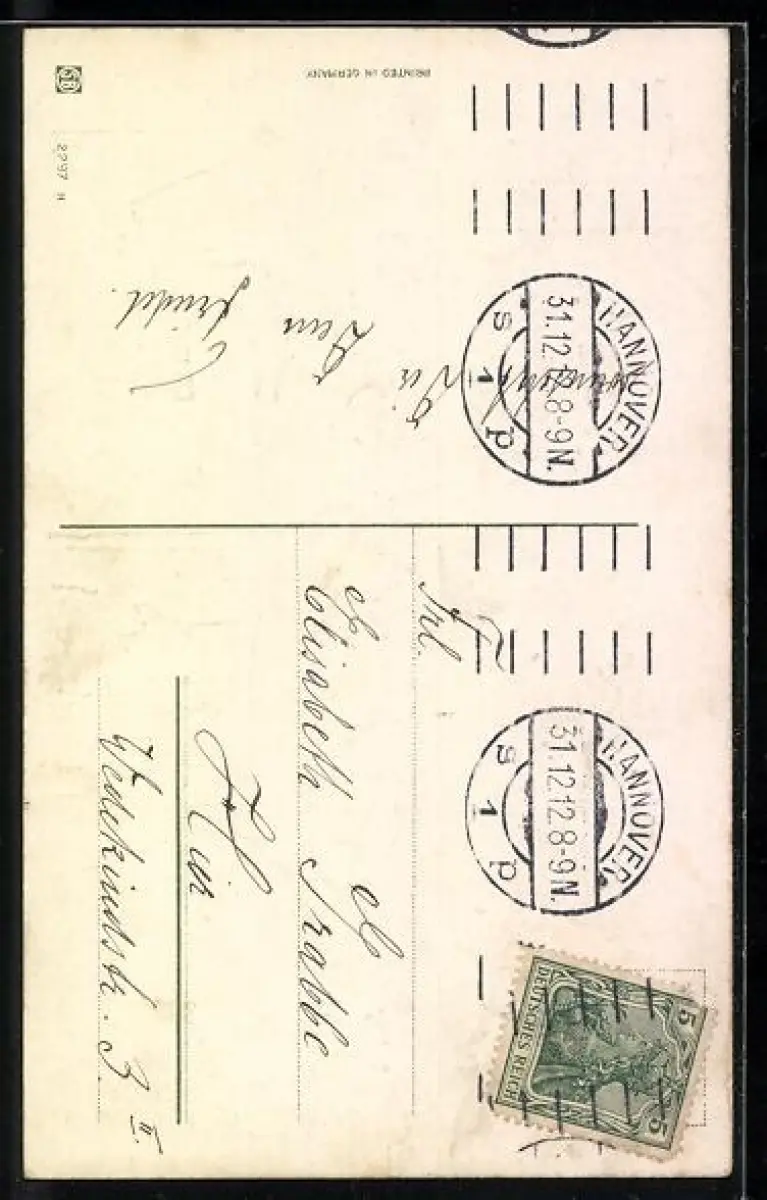 PRINTED IN GERMANY
2297 H
Dein
Friedel.
HANNOVER
31.12.12.8-9N.
s 1 p
HANNOVER
31.12.12.8-9N.
s 1 p
DEUTSCHES REICH
5 5
Frl.
Elisabeth
Hier
Wedekindstr. 3 II.